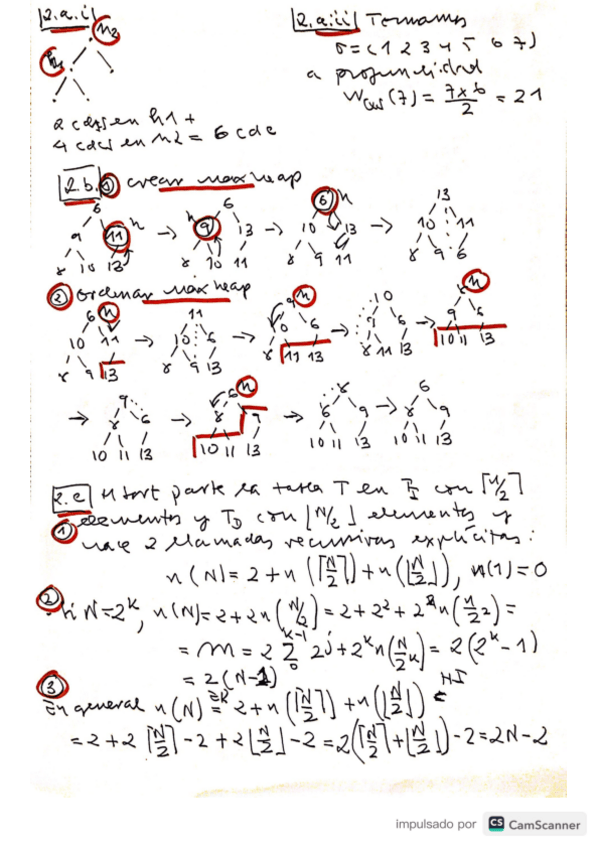 2.a.i
h2
h1
2 cdcs en h1 +
4 cdcs en h2 = 6 cdc
2.a.ii Tomamos
σ = (1 2 3 4 5 6 7)
a profundidad
W_QS(7) = 7x6/2 = 21
2.b. 1 crear maxheap
6 6 6 h 13
9 11 h → h 9 13 → 10 13 → 10 11
8 10 13 8 10 11 8 9 11 8 9 6
2 ordenar maxheap
6 h 11 9 h 10 8 h
10 11 → 10 6 → 10 6 → 9 6 → 9 6
8 9 13 8 9 13 8 11 13 8 11 13 10 11 13
9 6 h 8 6
→ 8 6 → 8 9 → 6 9 → 8 9
10 11 13 10 11 13 10 11 13 10 11 13
2.c MSort parte la tabla T en T_I con ⌈N/2⌉
1 elementos y T_D con ⌊N/2⌋ elementos y
hace 2 llamadas recursivas explícitas:
n(N) = 2 + n(⌈N/2⌉) + n(⌊N/2⌋), n(1) = 0
2 Si N=2^k, n(N) = 2 + 2n(N/2) = 2 + 2² + 2²n(N/2²) =
= ... = 2 Σ_0^{k-1} 2^j + 2^k n(N/2^k) = 2(2^k - 1)
= 2(N-1)
3
En general n(N) = 2 + n(⌈N/2⌉) + n(⌊N/2⌋) = HI
= 2 + 2⌈N/2⌉ - 2 + 2⌊N/2⌋ - 2 = 2(⌈N/2⌉ + ⌊N/2⌋) - 2 = 2N - 2
impulsado por CS CamScanner